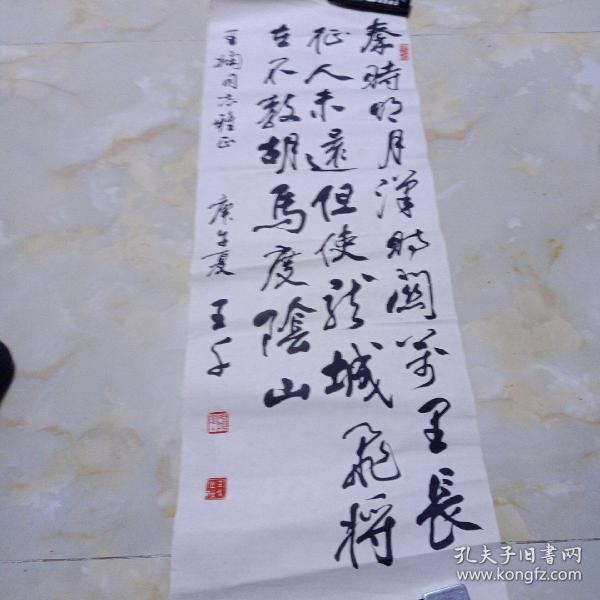 秦時明月漢時關萬里長
征人未還但使龍城飛將
在不教胡馬度陰山
同志雅正
庚午夏 王千
孔夫子旧书网
www.kongfz.com